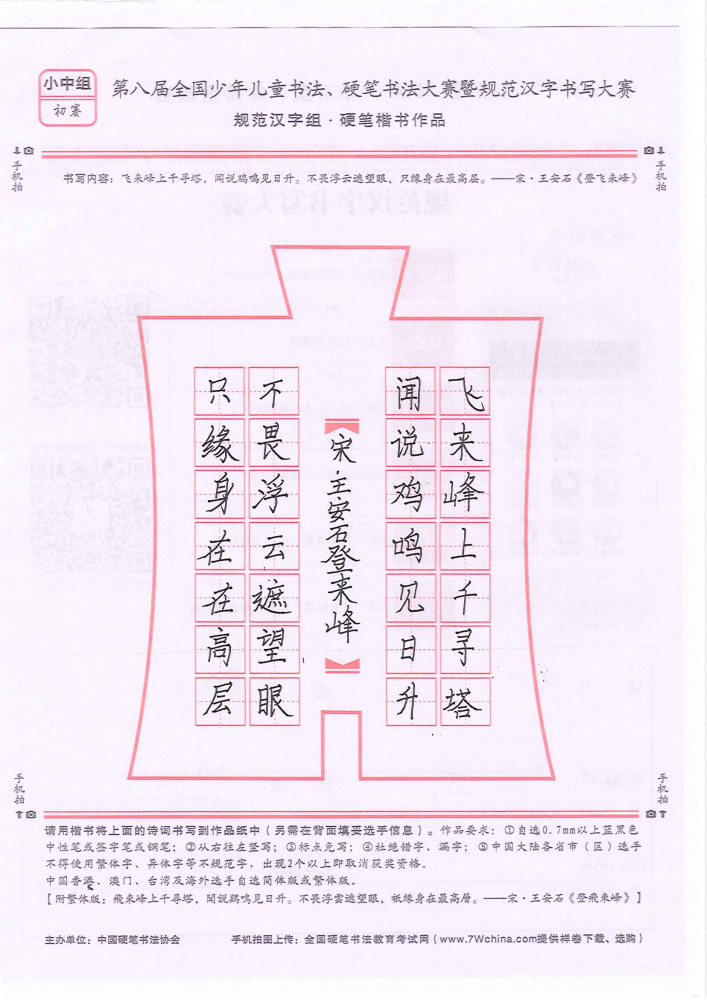 小中组
初赛
第八届全国少年儿童书法、硬笔书法大赛暨规范汉字书写大赛
规范汉字组·硬笔楷书作品
手机拍
手机拍
书写内容：飞来峰上千寻塔，闻说鸡鸣见日升。不畏浮云遮望眼，只缘身在最高层。——宋·王安石《登飞来峰》
飞来峰上千寻塔
闻说鸡鸣见日升
宋·王安石登来峰
不畏浮云遮望眼
只缘身在在高层
手机拍
手机拍
请用楷书将上面的诗词书写到作品纸中（另需在背面填妥选手信息）。作品要求：①自选0.7mm以上蓝黑色
中性笔或签字笔或钢笔；②从右往左竖写；③标点免写；④杜绝错字、漏字；⑤中国大陆各省市（区）选手
不得使用繁体字、异体字等不规范字，出现2个以上即取消获奖资格。
中国香港、澳门、台湾及海外选手自选简体版或繁体版。
【附繁体版：飛來峰上千尋塔，聞說鷄鳴見日升。不畏浮雲遮望眼，祇緣身在最高層。——宋·王安石《登飛來峰》】
主办单位：中国硬笔书法协会
手机拍图上传：全国硬笔书法教育考试网（www.7Wchina.com提供样卷下载、选购）